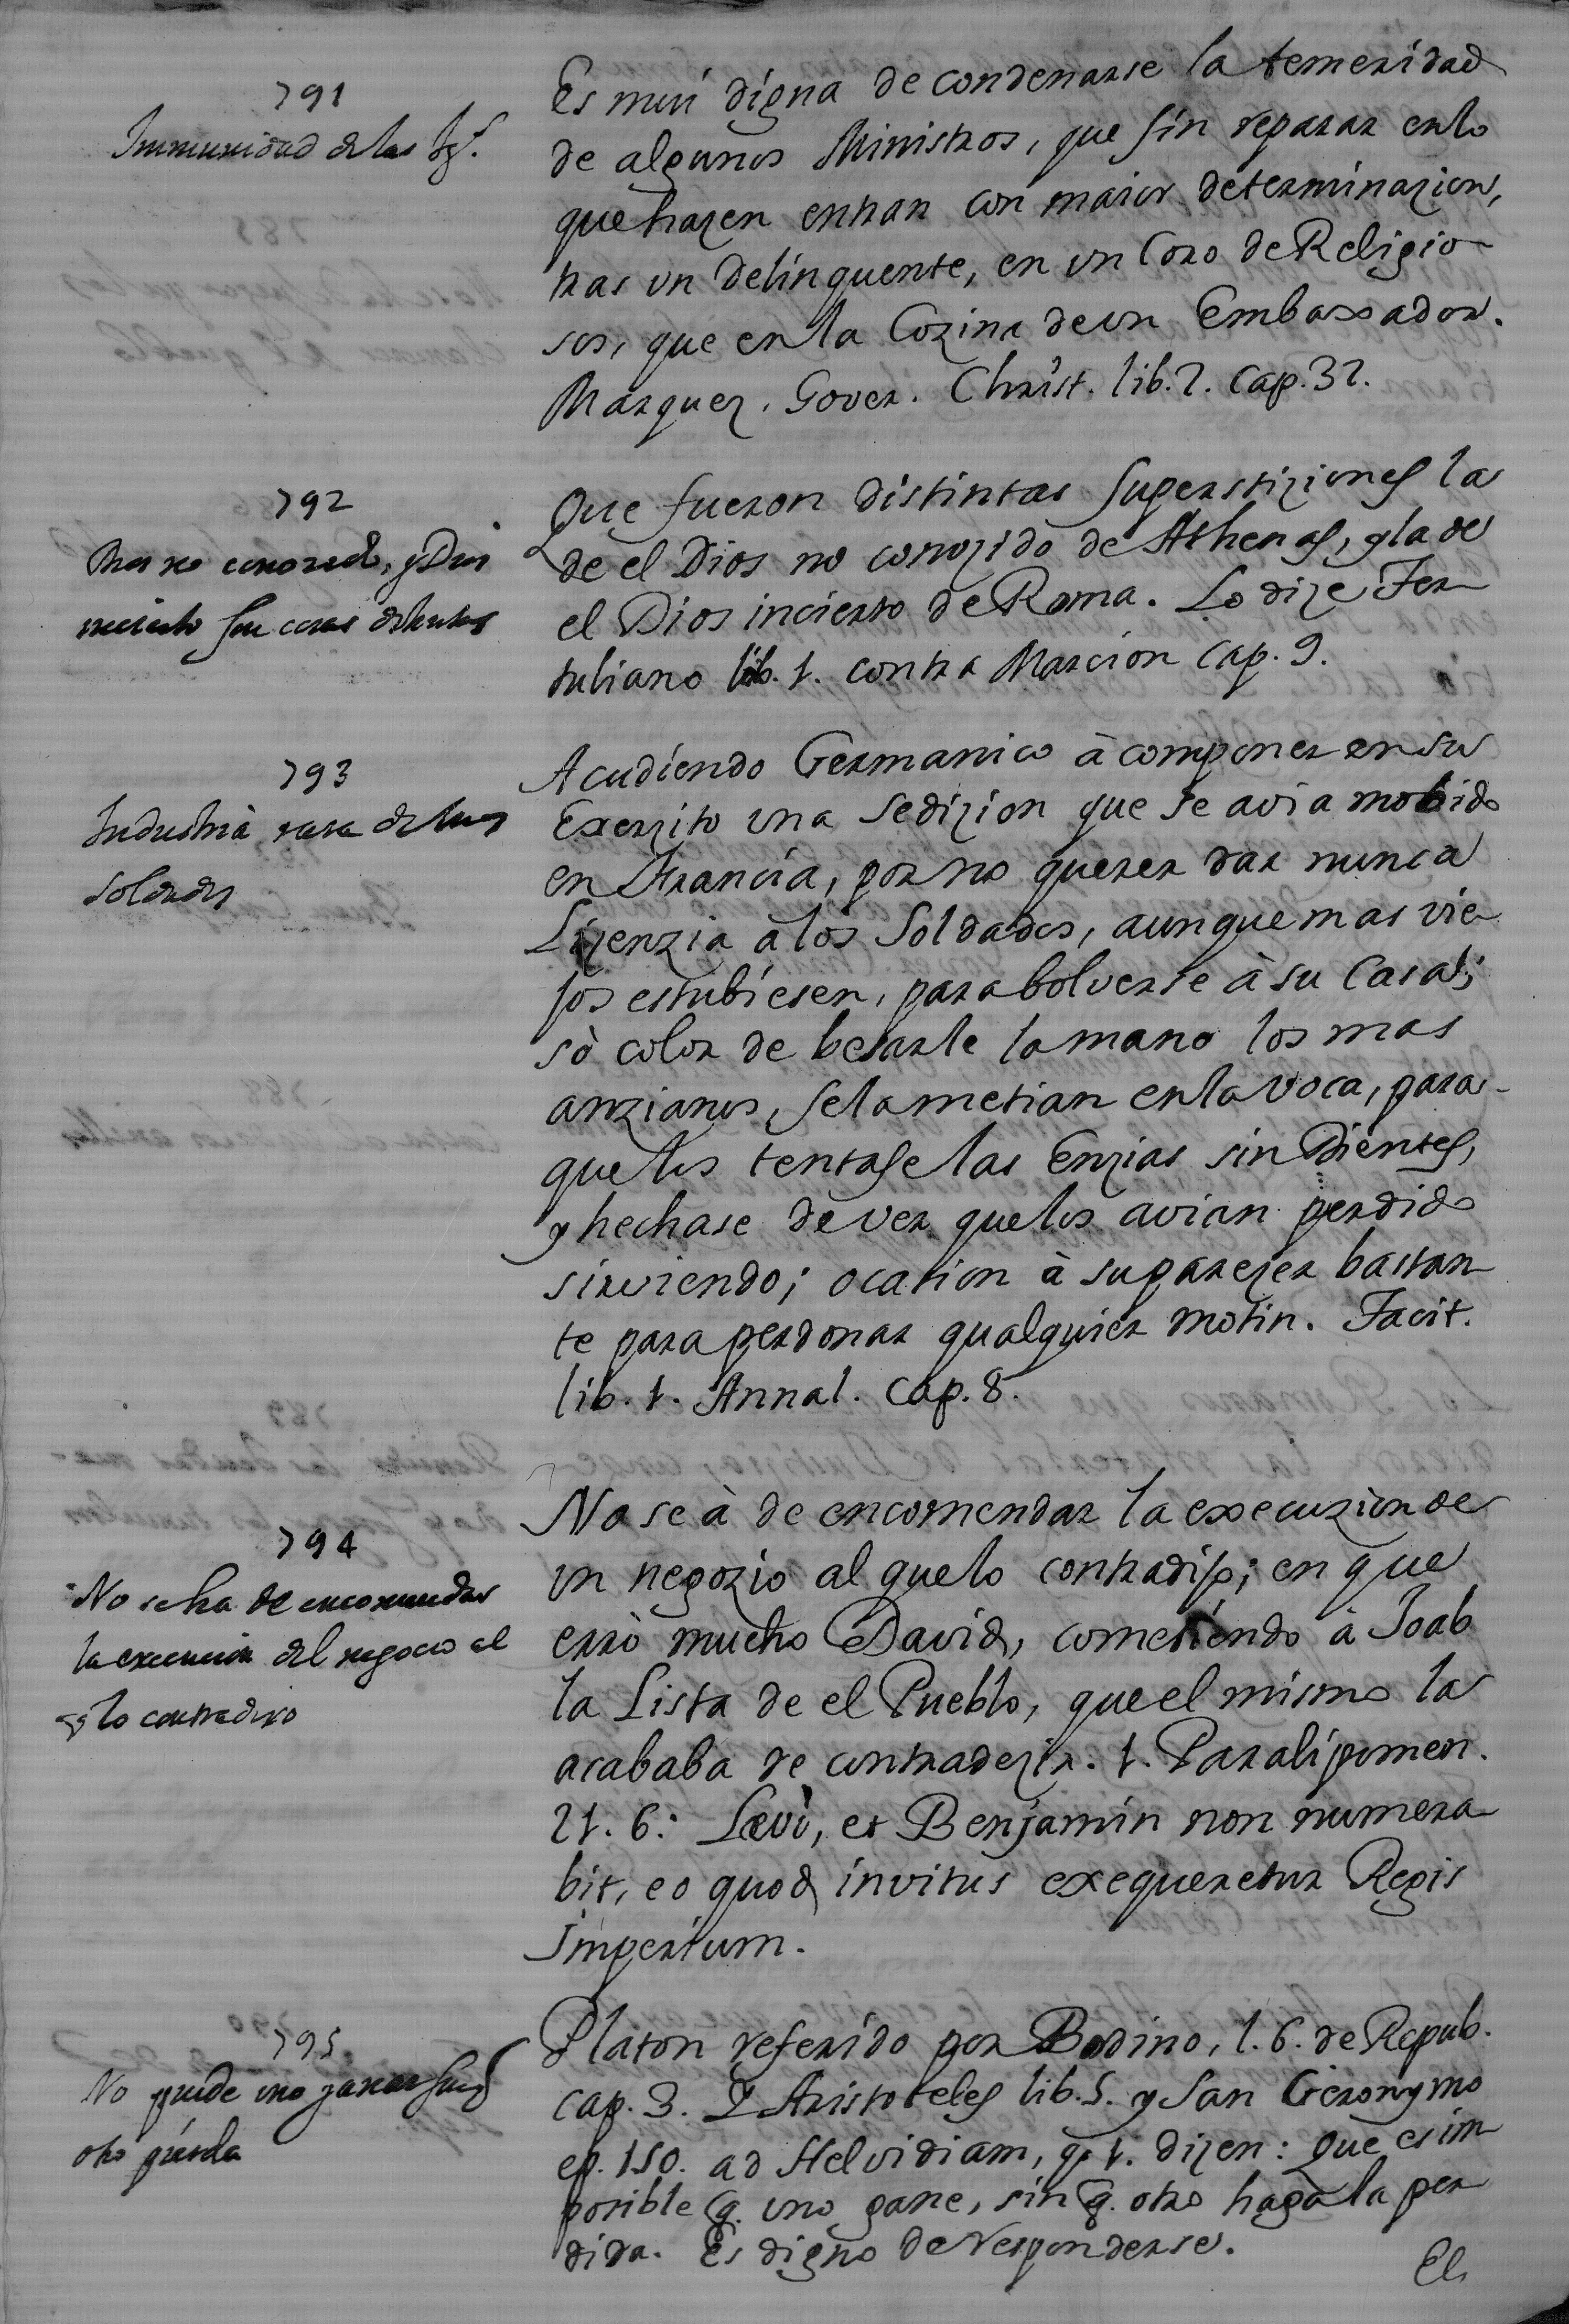 791
Immunidad de las Igs.
Es mui digna de condenarse la temeridad
de algunos Ministros, que sin reparar en lo
que hazen entran con maior determinazion,
tras un Delinquente, en un Coro de Religio
sos, que en la Cozina de un Embaxador.
Marquez. Gover. Christ. lib. 2. cap. 32.
792
Dios no conozido, y Dios
incierto son cosas distintas
Que fueron distintas superstiziones la
de el Dios no conozido de Athenas, y la de
el Dios incierto de Roma. Lo dize Ter
tuliano lib. 1. contra Marcion cap. 9.
793
Industria rara de unos
soldados
Acudiendo Germanico à componer en su
Exerzito una sedizion que se avia mobido
en Francia, por no querer dar nunca
Lizenzia a los Soldados, aunque mas vie
jos estubiesen, para bolverse à su Casa;
sò color de besarle la mano los mas
anzianos, se la metian en la voca, para-
que les tentase las Enzias sin Dientes,
y hechase de ver que los avian perdido
sirviendo; ocasion à su parezer bastan
te para perdonar qualquier motin. Tacit.
lib. 1. Annal. cap. 8.
794
No se ha de encomendar
la execucion del negocio al
q lo contradixo
No se à de encomendar la execuzion de
un negozio al que lo contradijo; en que
errò mucho David, cometiendo à Joab
la Lista de el Pueblo, que el mismo la
acababa de contradezir. 1. Paralipomen.
21. 6: Levì, et Benjamin non numera
bit, eo quod invitus exequeretur Regis
Imperium.
795
No puede uno ganar sin q
otro pierda
Platon referido por Bodino, l. 6. de Repub.
cap. 3. Y Aristoteles lib. 5. y San Geronymo
ep. 150. ad Helvidiam, q. 1. dizen: Que es im
posible q. uno gane, sin q. otro haga la per
dida. Es digno de Responderse.
El